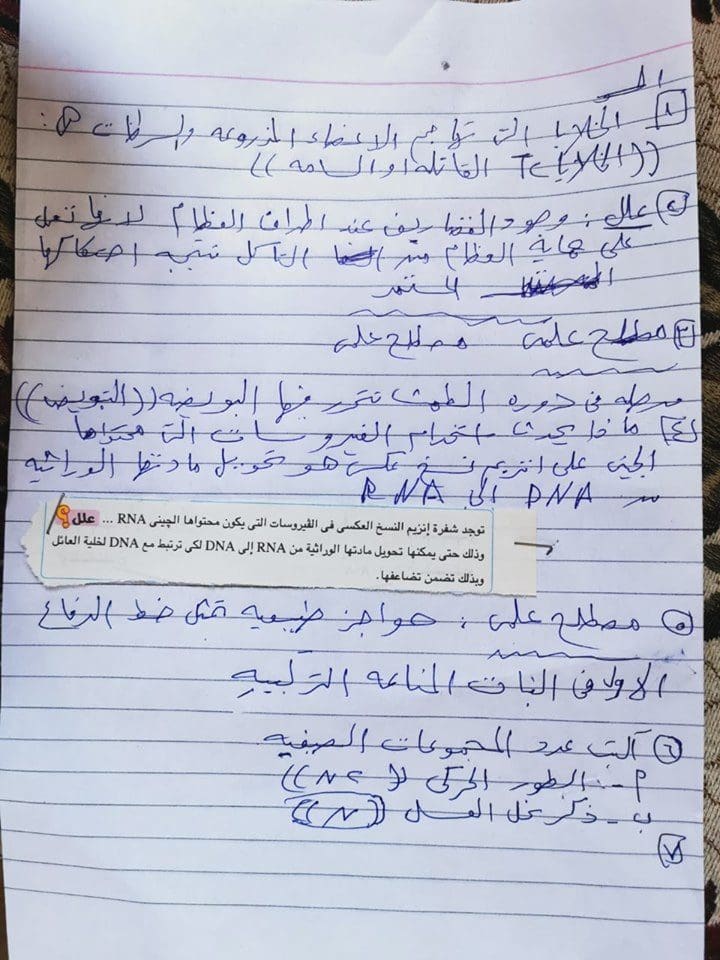 ١ الخلايا التى تهاجم الاعضاء المزروعه والسرطات هى :
(( الخلايا Tc القاتله او السامه ))
٢ علل : وجود الغضاريف عند اطراف العظام لانها تعمل
على حماية العظام من التاكل نتيجه احتكاكها
المستمر
٣ مصطلح علمى مصطلح علمى
مرحله فى دوره الطمث تتحرر فيها البويضه (( التبويض ))
٤ ماذا يحدث استخدام الفيروسات التى محتواها
الجينى على انزيم نسخ عكسى هو تحويل مادتها الوراثيه
من DNA الى RNA
توجد شفرة إنزيم النسخ العكسى فى الڤيروسات التى يكون محتواها الچينى RNA ... علل؟
وذلك حتى يمكنها تحويل مادتها الوراثية من RNA إلى DNA لكى ترتبط مع DNA لخلية العائل
وبذلك تضمن تضاعفها.
٥ مصطلح علمى : حواجز طبيعيه تمثل خط الدفاع
الاول فى النبات المناعه التركيبيه
٦ اكتب عدد المجموعات الصبغيه
P - الطور الحركى لا (( 2N ))
ب - ذكر نحل العسل (( N ))
٧